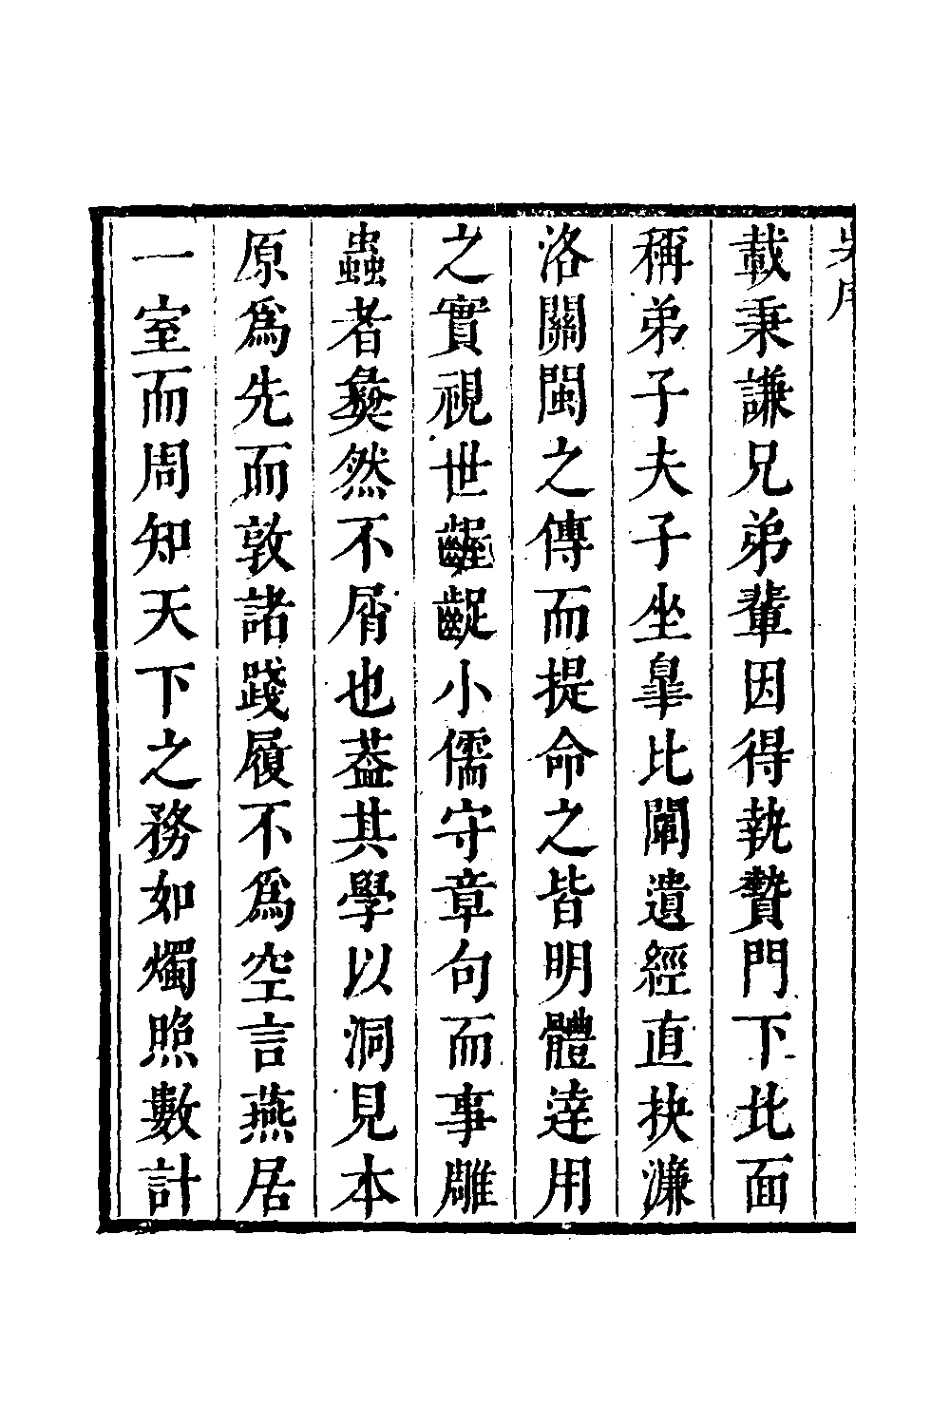 載秉謙兄弟輩因得執贄門下北面
稱弟子夫子坐臯比闡遺經直抉濂
洛關閩之傳而提命之皆明體達用
之實視世齷齪小儒守章句而事雕
蟲者蔑然不屑也葢其學以洞見本
原爲先而敦諸踐履不爲空言燕居
一室而周知天下之務如燭照數計